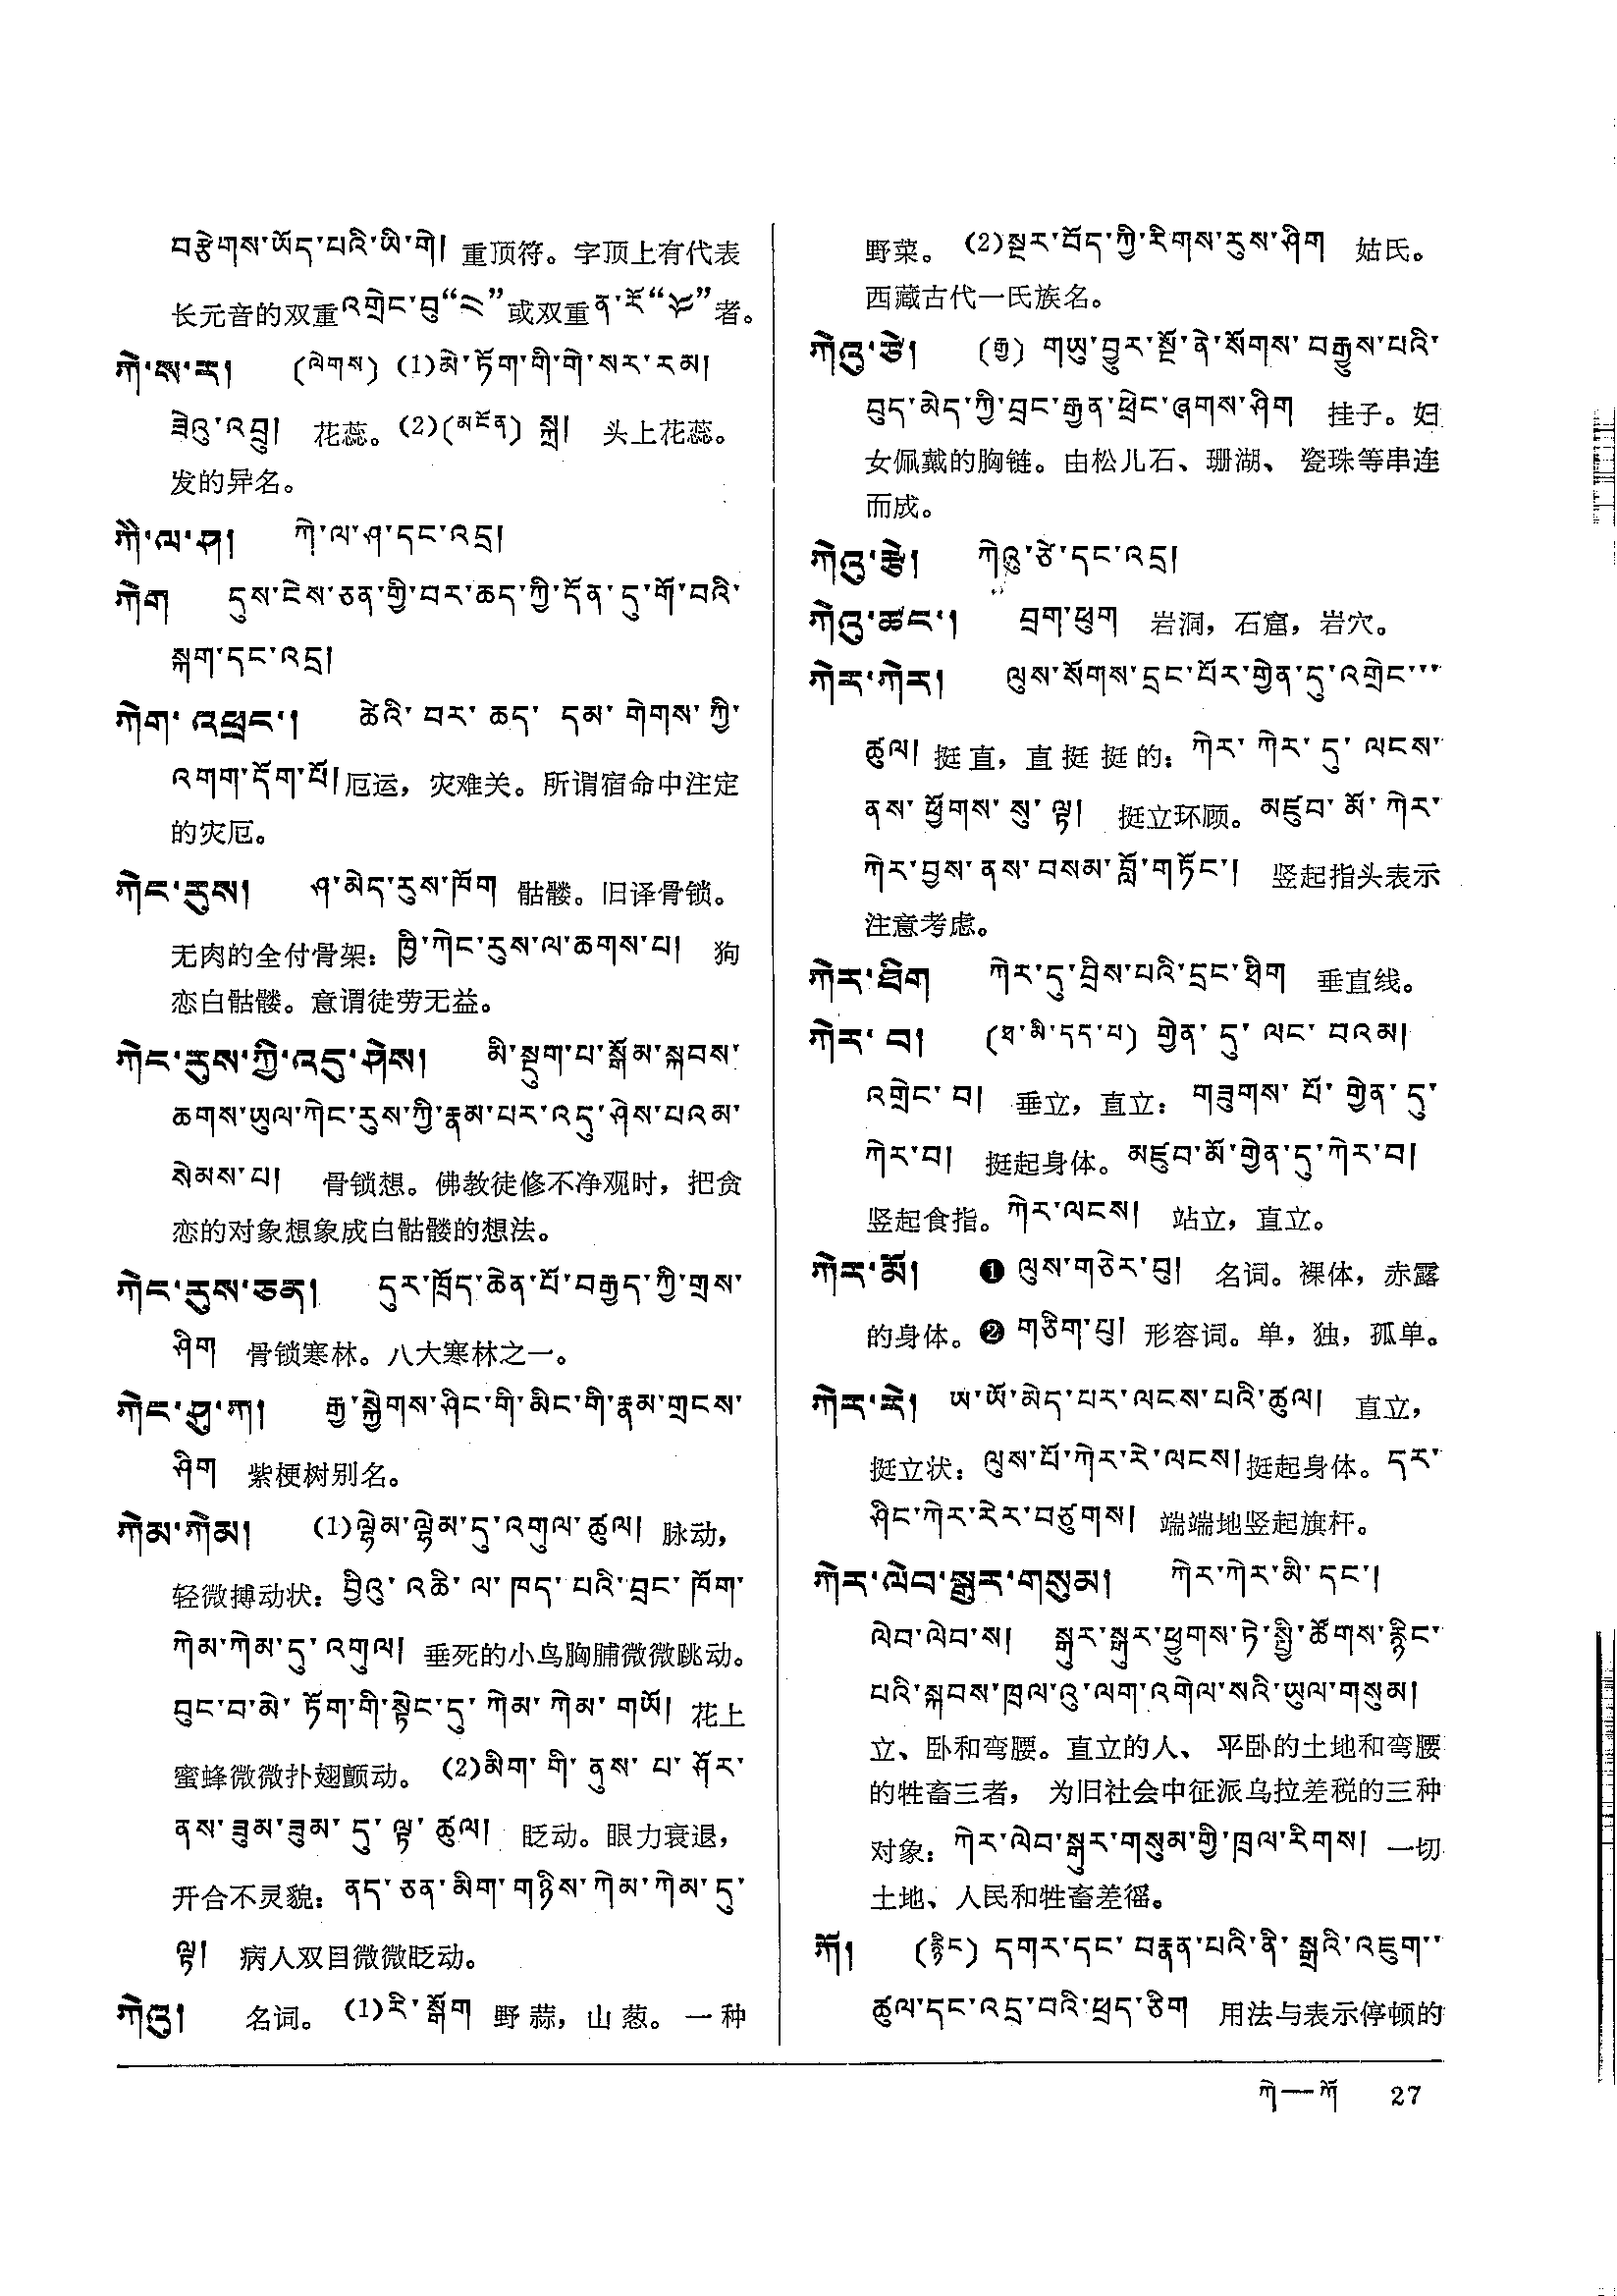 བརྩེགས་ཡོད་པའི་ཡི་གེ། 重顶符。字顶上有代表
长元音的双重འགྲེང་བུ“ཻ”或双重ན་རོ“ཽ”者。
ཀེ་ས་ར། (ལེགས) (1)མེ་ཏོག་གི་གེ་སར་རམ།
ཟེའུ་འབྲུ། 花蕊。(2)(མངོན) སྐྲ། 头上花蕊。
发的异名。
ཀཻ་ལ་ཤ། ཀེ་ལ་ཤ་དང་འདྲ།
ཀེག དུས་ངེས་ཅན་གྱི་བར་ཆད་ཀྱི་དོན་དུ་གོ་བའི་
སྐག་དང་འདྲ།
ཀེག་འཕྲང་། ཚེའི་བར་ཆད་དམ་གེགས་ཀྱི་
འགག་དོག་པོ།厄运，灾难关。所谓宿命中注定
的灾厄。
ཀེང་རུས། ཤ་མེད་རུས་ཁོག 骷髅。旧译骨锁。
无肉的全付骨架：ཁྱི་ཀེང་རུས་ལ་ཆགས་པ། 狗
恋白骷髅。意谓徒劳无益。
ཀེང་རུས་ཀྱི་འདུ་ཤེས། མི་སྡུག་པ་སྒོམ་སྐབས་
ཆགས་ཡུལ་ཀེང་རུས་ཀྱི་རྣམ་པར་འདུ་ཤེས་པའམ་
སེམས་པ། 骨锁想。佛教徒修不净观时，把贪
恋的对象想象成白骷髅的想法。
ཀེང་རུས་ཅན། དུར་ཁྲོད་ཆེན་པོ་བརྒྱད་ཀྱི་གྲས་
ཤིག 骨锁寒林。八大寒林之一。
ཀེང་ཤུ་ཀ། རྒྱ་སྐྱེགས་ཤིང་གི་མིང་གི་རྣམ་གྲངས་
ཤིག 紫梗树别名。
ཀེམ་ཀེམ། (1)ལྷེམ་ལྷེམ་དུ་འགུལ་ཚུལ། 脉动，
轻微搏动状：བྱིའུ་འཆི་ལ་ཁད་པའི་བྲང་ཁོག་
ཀེམ་ཀེམ་དུ་འགུལ། 垂死的小鸟胸脯微微跳动。
བུང་བ་མེ་ཏོག་གི་སྟེང་དུ་ཀེམ་ཀེམ་གཡོ། 花上
蜜蜂微微扑翅颤动。(2)མིག་གི་ནུས་པ་ཤོར་
ནས་ཟུམ་ཟུམ་དུ་ལྟ་ཚུལ། 眨动。眼力衰退，
开合不灵貌：ནད་ཅན་མིག་གཉིས་ཀེམ་ཀེམ་དུ་
ལྟ། 病人双目微微眨动。
ཀེའུ། 名词。(1)རི་སྒོག 野蒜，山葱。一种
野菜。(2)སྔར་བོད་ཀྱི་རིགས་རུས་ཤིག 姑氏。
西藏古代一氏族名。
ཀེའུ་ཙེ། (རྒྱ) གཡུ་བྱུར་སྔོ་ནེ་སོགས་བརྒྱུས་པའི་
བུད་མེད་ཀྱི་བྲང་རྒྱན་ཕྲེང་ཞགས་ཤིག 挂子。妇
女佩戴的胸链。由松儿石、珊湖、瓷珠等串连
而成。
ཀེའུ་རྩེ། ཀེའུ་ཙེ་དང་འདྲ།
ཀེའུ་ཚང་། བྲག་ཕུག 岩洞，石窟，岩穴。
ཀེར་ཀེར། ལུས་སོགས་དྲང་པོར་གྱེན་དུ་འགྲེང་་་
ཚུལ། 挺直，直挺挺的：ཀེར་ཀེར་དུ་ལངས་
ནས་ཕྱོགས་སུ་ལྟ། 挺立环顾。མཛུབ་མོ་ཀེར་
ཀེར་བྱས་ནས་བསམ་བློ་གཏོང་། 竖起指头表示
注意考虑。
ཀེར་ཐིག ཀེར་དུ་བྲིས་པའི་དྲང་ཐིག 垂直线。
ཀེར་བ། (ཐ་མི་དད་པ) གྱེན་དུ་ལང་བའམ།
འགྲེང་བ། 垂立，直立：གཟུགས་པོ་གྱེན་དུ་
ཀེར་བ། 挺起身体。མཛུབ་མོ་གྱེན་དུ་ཀེར་བ།
竖起食指。ཀེར་ལངས། 站立，直立。
ཀེར་མོ། ❶ ལུས་གཅེར་བུ། 名词。裸体，赤露
的身体。❷ གཅིག་པུ། 形容词。单，独，孤单。
ཀེར་རེ། ཨ་ཡོ་མེད་པར་ལངས་པའི་ཚུལ། 直立，
挺立状：ལུས་པོ་ཀེར་རེ་ལངས།挺起身体。དར་
ཤིང་ཀེར་རེར་བཙུགས། 端端地竖起旗杆。
ཀེར་ལེབ་སྒུར་གསུམ། ཀེར་ཀེར་མི་དང་།
ལེབ་ལེབ་ས། སྒུར་སྒུར་ཕྱུགས་ཏེ་སྤྱི་ཚོགས་རྙིང་
པའི་སྐབས་ཁྲལ་འུ་ལག་འགེལ་སའི་ཡུལ་གསུམ།
立、卧和弯腰。直立的人、平卧的土地和弯腰
的牲畜三者，为旧社会中征派乌拉差税的三种
对象：ཀེར་ལེབ་སྒུར་གསུམ་གྱི་ཁྲལ་རིགས། 一切
土地、人民和牲畜差徭。
ཀོ། (རྙིང) དགར་དང་བརྣན་པའི་ནི་སྒྲའི་འཇུག་་
ཚུལ་དང་འདྲ་བའི་ཕྲད་ཅིག 用法与表示停顿的
ཀེ—ཀོ 27